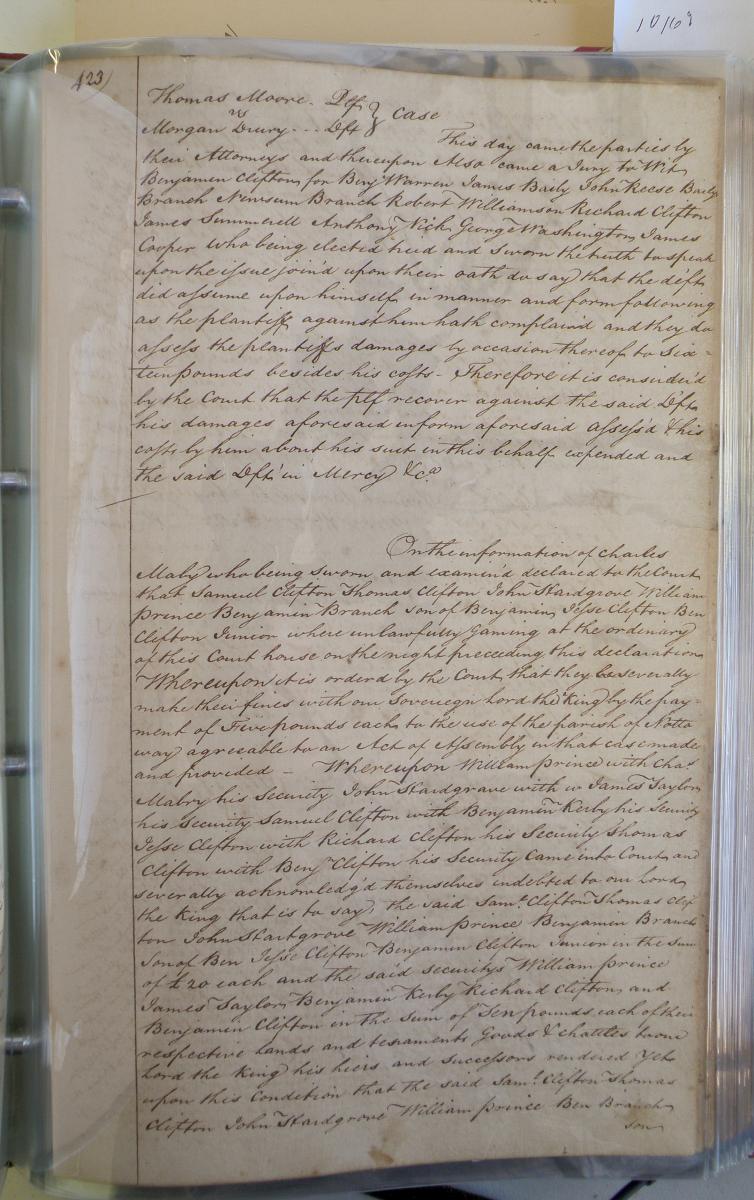 10/69
423)
Thomas Moore. Plf } case
vs
Morgan Drury - - - Dft
This day came the parties by
their Attorneys and thereupon Also came a Jury to Wit
Benjamen Clifton for Benj Warren James Baily John Reese Baily
Branch Newsum Branch Robert Williamson Richard Clifton
James Summerell Anthony Nick George Washington James
Cooper who being elected tried and sworn the truth to speak
upon the issue join'd upon their oath do say that the deft
did assume upon himself in manner and form following
as the plantiff against him hath complain'd and they do
assess the plantiffs damages by occasion thereof to Six=
teen pounds besides his costs - Therefore it is consider'd
by the Court that the plf recover against the said Dft
his damages aforesaid in form aforesaid assess'd & his
costs by him about his suit in this behalf expended and
the said Dft in Mercy &ca
On the information of Charles
Mabry who being sworn and examin'd declared to the Court
that Samuel Clifton Thomas Clifton John Hardgrove William
Prince Benjamin Branch son of Benjamin Jesse Clifton Ben
Clifton Junior where unlawfully gaming at the ordinary
of this Court house on the night preceeding this declaration
Whereupon it is orderd by the Court that they be severally
make their fines with our sovereign Lord the King by the pay=
ment of Five pounds each to the use of the parish of Notto
way agreeable to an Act of Assembly in that case made
and provided - Whereupon William Prince with Chas
Mabry his Security John Hardgrave with w James Taylor
his Security Samuel Clifton with Benjamin Kerby his Security
Jesse Clifton with Richard Clifton his Security Thomas
Clifton with Benj Clifton his Security Came into Court and
severally acknowledg'd themselves indebted to our Lord
the King that is to say, the said Saml Clifton Thomas Clif
ton John Hartgrove William Prince Benjamin Branch
Son of Ben Jesse Clifton Benjamin Clifton Junior in the sum
of £20 each and the said securitys William Prince
James Taylor Benjamin Kerby Richard Clifton and
Benjamin Clifton in the sum of Ten pounds each of their
respective Lands and tenaments Goods & chattles to our
Lord the King his heirs and successors rendered Yet
upon this Condition that the said Saml Clifton Thomas
Clifton John Hardgrove William Prince Ben Branch
son